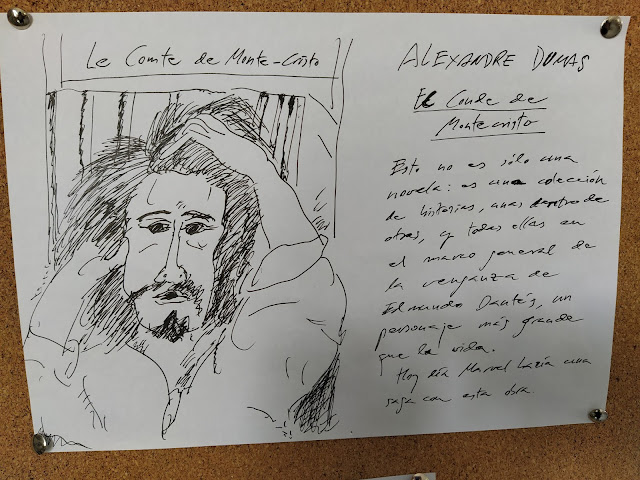 Le Comte de Monte-Cristo
ALEXANDRE DUMAS
El Conde de
Montecristo
Esto no es sólo una
novela: es una colección
de historias, unas dentro de
otras, y todas ellas en
el marco general de
la venganza de
Edmundo Dantés, un
personaje más grande
que la vida.
Hoy día Marvel haría una
saga con esta obra.